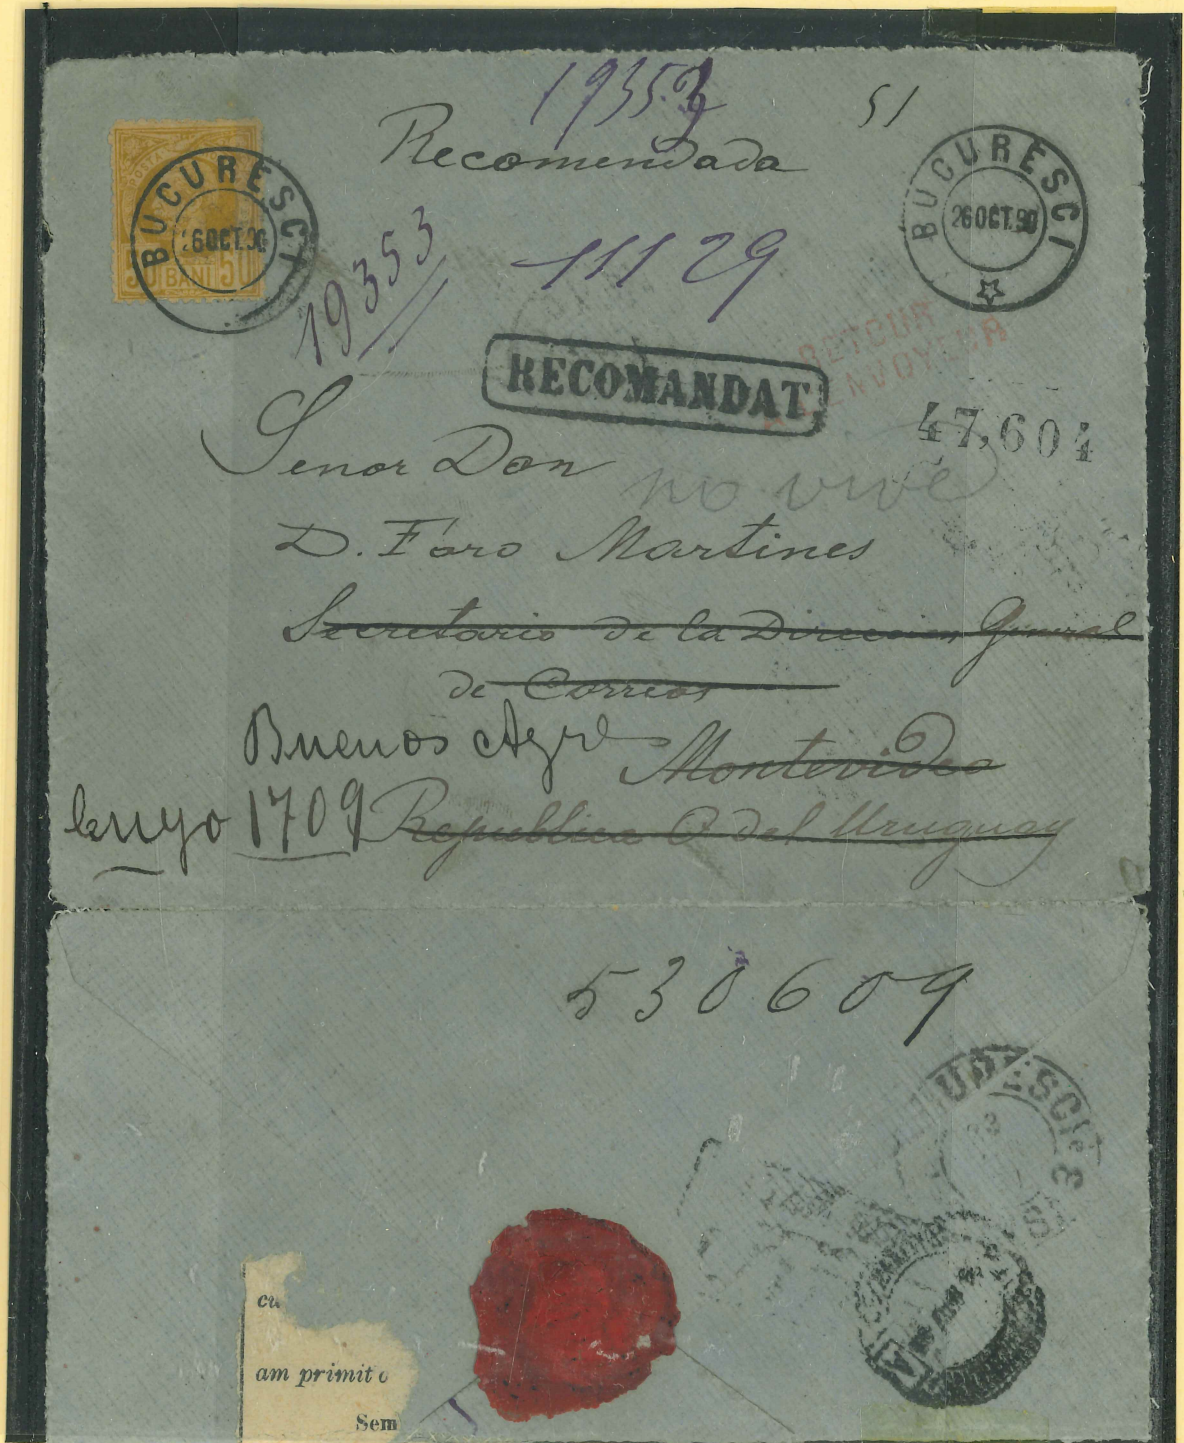 19353
51
Recomendada
POSTA
50 BANI 50
BUCURESCI
26 OCT. 90
BUCURESCI
26 OCT. 90
19353
11129
RETOUR
A L'ENVOYEUR
RECOMANDAT
47,604
Senor Don
no vive
D. Faro Martines
Secretario de la Direccion General
de Correos
Buenos Ayres
Montevideo
Cuyo 1709
Republica O del Uruguay
530609
cu
am primit
Sem